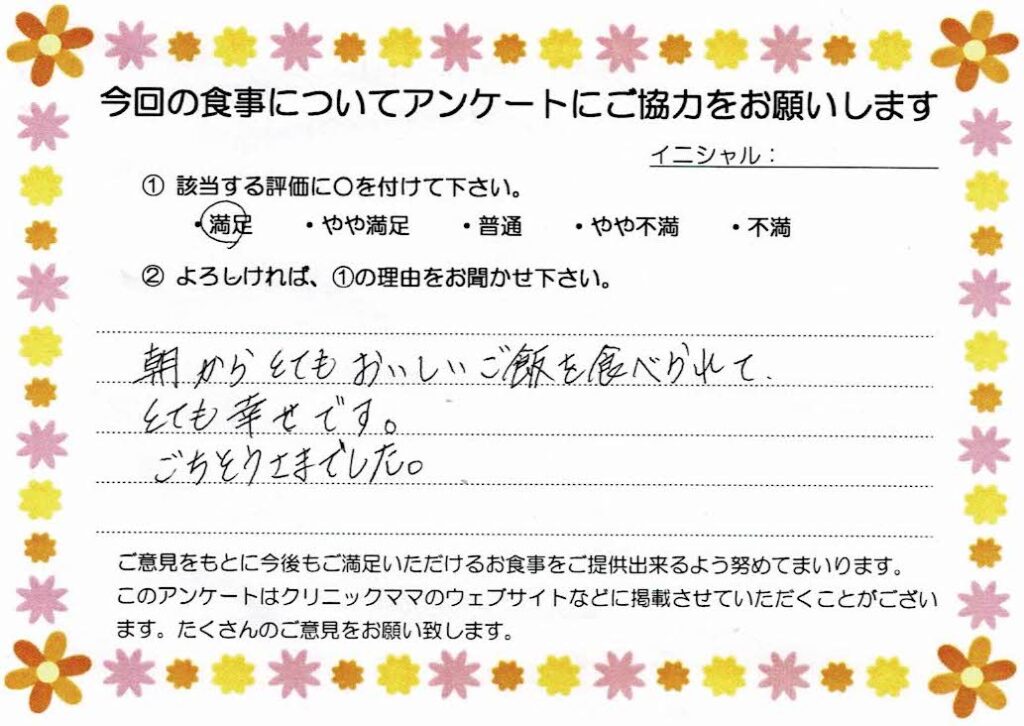 今回の食事についてアンケートにご協力をお願いします
イニシャル：
① 該当する評価に〇を付けて下さい。
・満足 ・やや満足 ・普通 ・やや不満 ・不満
② よろしければ、①の理由をお聞かせ下さい。
朝からとてもおいしいご飯を食べられて、
とても幸せです。
ごちそうさまでした。
ご意見をもとに今後もご満足いただけるお食事をご提供出来るよう努めてまいります。
このアンケートはクリニックママのウェブサイトなどに掲載させていただくことがござい
ます。たくさんのご意見をお願い致します。